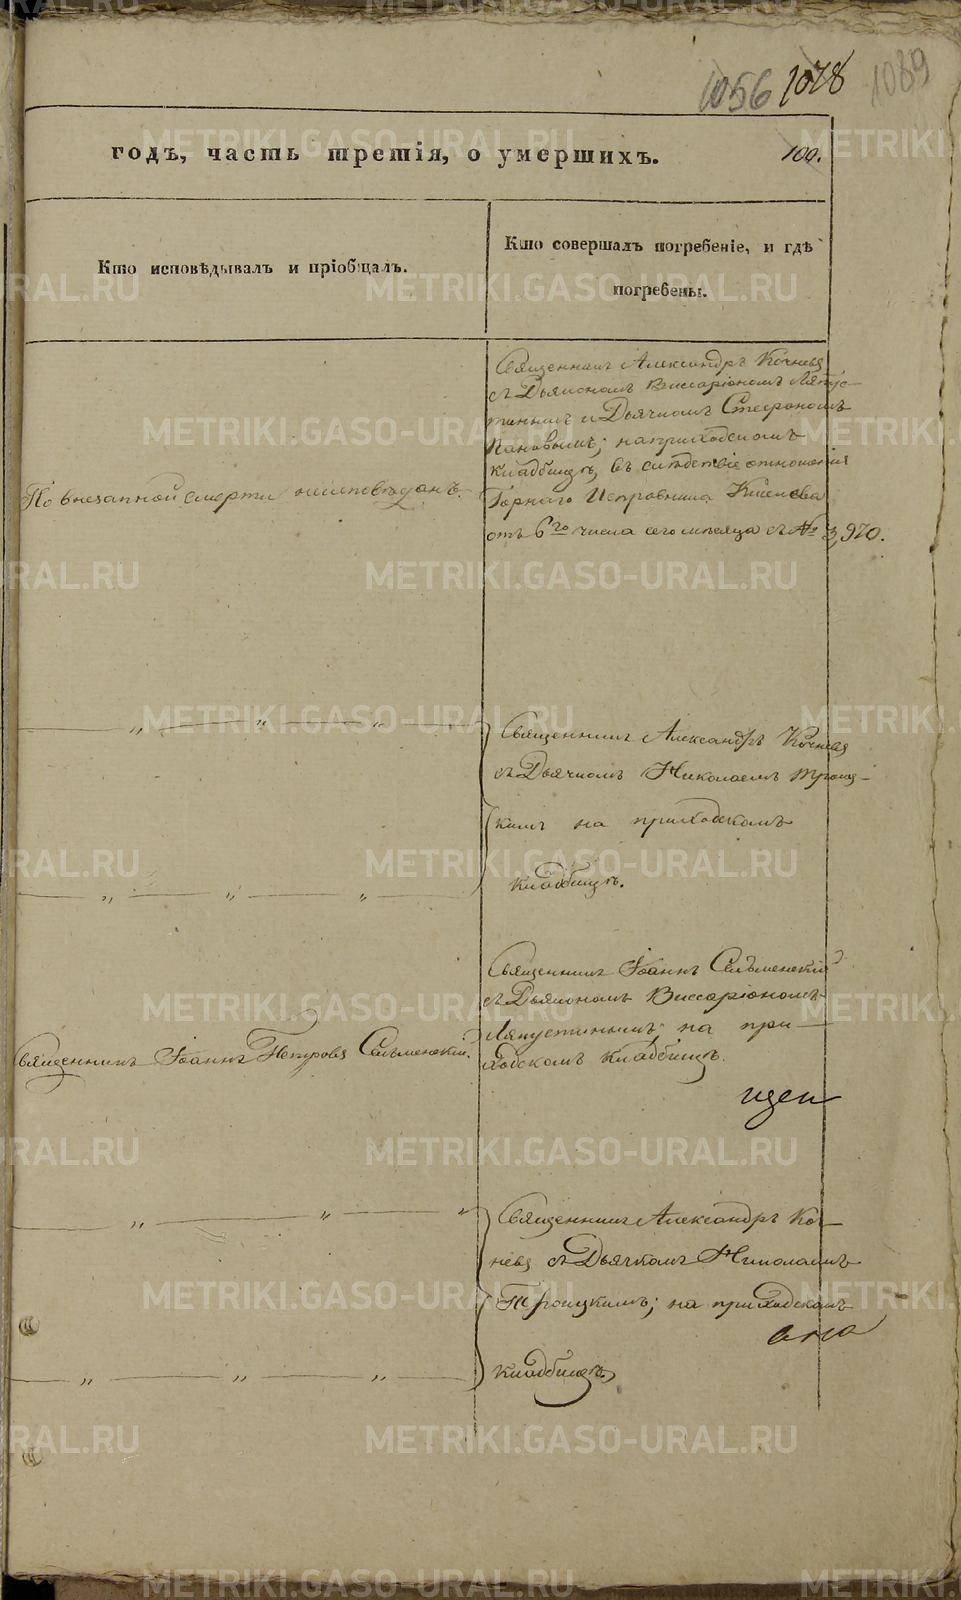 1056 1078 1089
годъ, часть третія, о умершихъ. 100.
Кто исповѣдывалъ и пріобщалъ.
Кто совершалъ погребеніе, и гдѣ
погребены.
Священникъ Александръ Кочневъ
съ Дьякономъ Виссаріономъ Ляпус-
тинымъ и Дьячкомъ Стефаномъ
Пановымъ; на приходскомъ
кладбищѣ, въ слѣдствіе отношенія
По внезапной смерти неисповѣданъ.
Горнаго Исправника Киселева
отъ 6го числа сего мѣсяца съ № 3,970.
Священникъ Александръ Кочневъ
съ Дьячкомъ Николаемъ Троиц-
кимъ на приходскомъ
кладбищѣ.
Священникъ Іоаннъ Петровъ Сельменскій.
Священникъ Іоаннъ Сельменскій
съ Дьякономъ Виссаріономъ
Ляпустинымъ; на при-
ходскомъ кладбищѣ.
Священникъ Александръ Коч-
невъ съ Дьячкомъ Николаемъ
Троицкимъ; на приходскомъ
кладбищѣ.
METRIKI.GASO-URAL.RU